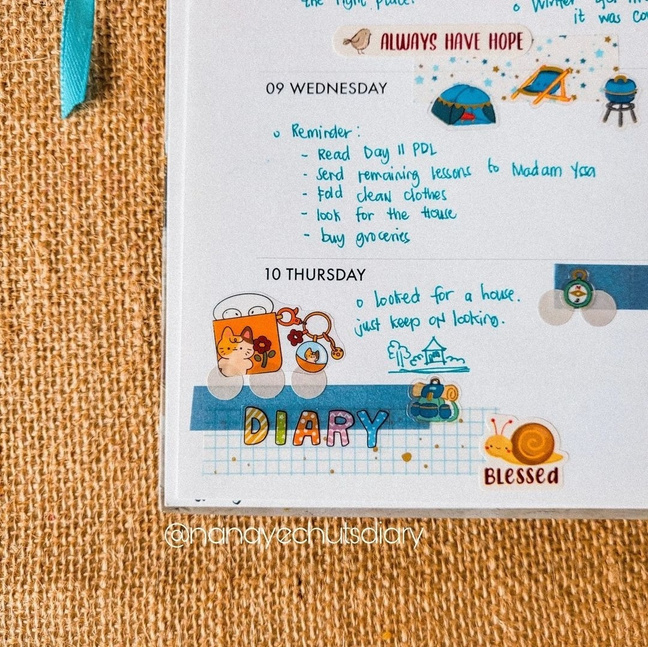 the right place.
o Winter
it was
ALWAYS HAVE HOPE
09 WEDNESDAY
o Reminder:
- Read Day 11 PDL
- Send remaining lessons to Madam Ysa
- Fold clean clothes
- look for the House
- buy groceries
10 THURSDAY
o looked for a house.
just keep on looking.
DIARY
BLESSed
@nanayechutsdiary